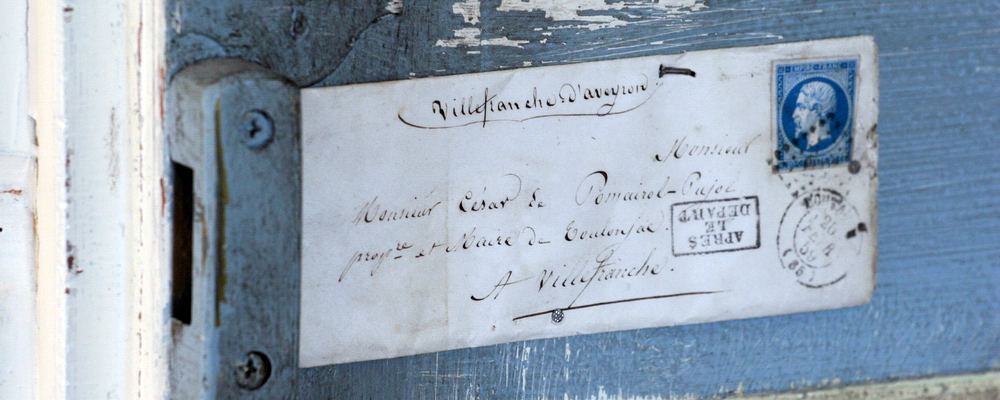 Villefranche d'aveyron
EMPIRE FRANC
Monsieur
Monsieur César de Pomairol-Pujol
propre et Maire de Toulonjac.
A Villefranche.
APRES
LE
DEPART
26
59
(86)